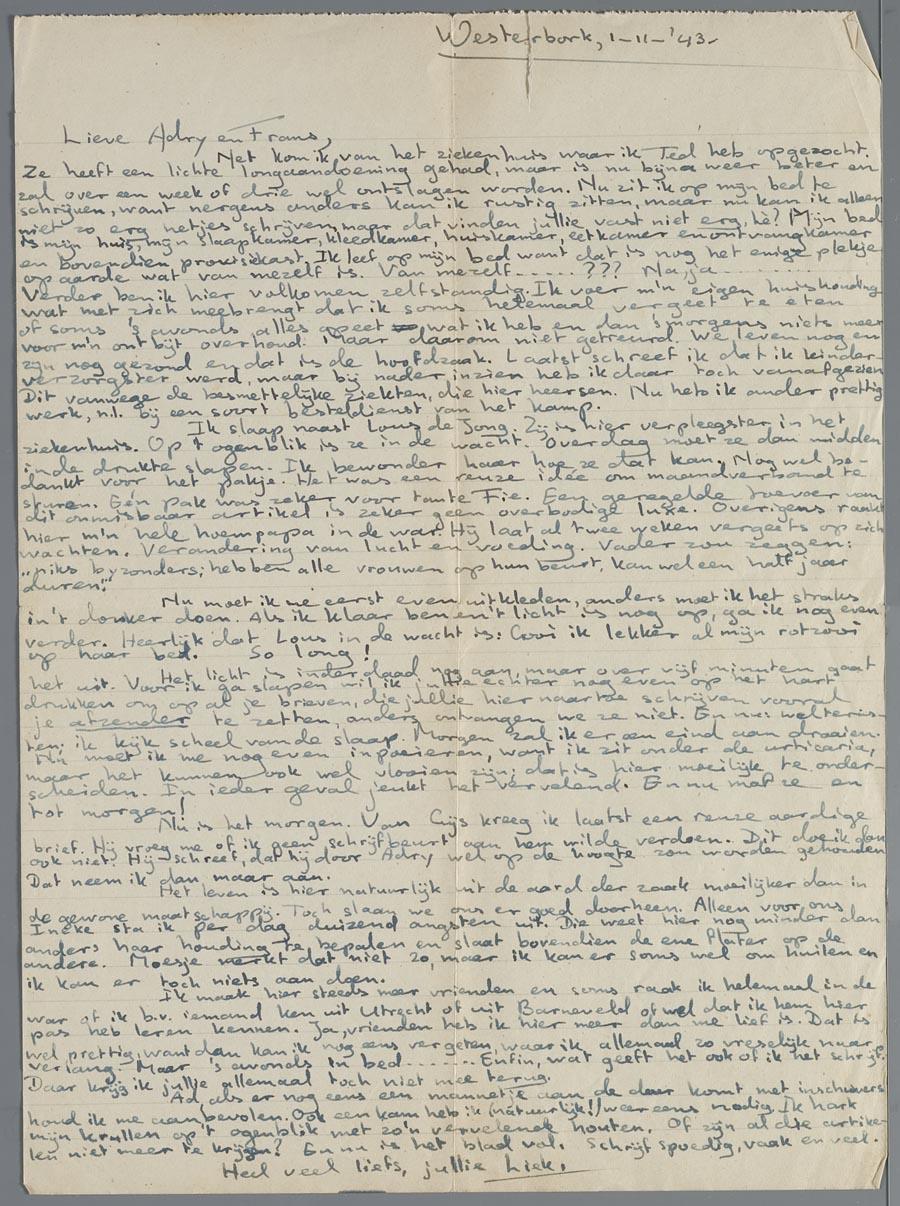 Westerbork, 1-11-'43-
Lieve Adry en Frans,
Net kom ik van het ziekenhuis waar ik Ted heb opgezocht.
Ze heeft een lichte longaandoening gehad, maar is nu bijna weer beter en
zal over een week of drie wel ontslagen worden. Nu zit ik op mijn bed te
schrijven, want nergens anders kan ik rustig zitten, maar nu kan ik alleen
niet zo erg netjes schrijven, maar dat vinden jullie vast niet erg, hè? Mijn bed
is mijn huis, mijn slaapkamer, kleedkamer, huiskamer, eetkamer en ontvangkamer
en bovendien provisiekast. Ik leef op mijn bed want dat is nog het enige plekje
op aarde wat van mezelf is. Van mezelf...... ??? Na, ja.........
Verder ben ik hier volkomen zelfstandig. Ik voer m'n eigen huishouding
wat met zich meebrengt dat ik soms helemaal vergeet te eten
of soms 's avonds alles opeet wat ik heb en dan 's morgens niets meer
voor m'n ontbijt overhoud. Maar daarom niet getreurd. We leven nog en
zijn nog gezond en dat is de hoofdzaak. Laatst schreef ik dat ik kinder-
verzorgster werd, maar bij nader inzien heb ik daar toch van afgezien
Dit vanwege de besmettelijke ziekten, die hier heersen. Nu heb ik ander prettig
werk, n.l. bij een soort besteldienst van het kamp.
Ik slaap naast Lous de Jong. Zij is hier verpleegster, in het
ziekenhuis. Op 't ogenblik is ze in de wacht. Overdag moet ze dan midden
in de drukte slapen. Ik bewonder haar hoe ze dat kan. Nog wel be-
dankt voor het pakje. Het was een reuze idee om maandverband te
sturen. Eén pak was zeker voor tante Fie. Een geregelde toevoer van
dit onmisbaar artikel is zeker geen overbodige luxe. Overigens raakt
hier m'n hele hoempapa in de war. Hij laat al twee weken vergeefs op zich
wachten. Verandering van lucht en voeding. Vader zou zeggen:
"niks byzonders; hebben alle vrouwen op hun beurt, kan wel een half jaar
duren."
Nu moet ik me eerst even uitkleden, anders moet ik het straks
in 't donker doen. Als ik klaar ben en 't licht is nog op, ga ik nog even
verder. Heerlijk dat Lous in de wacht is: Gooi ik lekker al mijn rotzooi
op haar bed. So long!
Het licht is inderdaad nog aan, maar over vijf minuten gaat
het uit. Voor ik ga slapen wil ik jullie echter nog even op het hart
drukken om op al je brieven, die jullie hier naartoe schrijven vooral
je afzender te zetten, anders ontvangen we ze niet. En nu: welterus-
ten; ik kijk scheel van de slaap. Morgen zal ik er een eind aan draaien.
Nu moet ik me nog even inpoeieren, want ik zit onder de urticaria,
maar het kunnen ook wel vlooien zijn; dat is hier moeilijk te onder-
scheiden. In ieder geval jeukt het vervelend. En nu maf ze en
tot morgen!
Nu is het morgen. Van Gijs kreeg ik laatst een reuze aardige
brief. Hij vroeg me of ik geen schrijfbeurt aan hem wilde verdoen. Dit doe ik dan
ook niet. Hij schreef, dat hij door Adry wel op de hoogte zou worden gehouden
Dat neem ik dan maar aan.
Het leven is hier natuurlijk uit de aard der zaak moeilijker dan in
de gewone maatschappij. Toch slaan we ons er goed doorheen. Alleen voor ons
Ineke sta ik per dag duizend angsten uit. Die weet hier nog minder dan
anders haar houding te bepalen en slaat bovendien de ene flater op de
andere. Moesje merkt dat niet zo, maar ik kan er soms wel om huilen en
ik kan er toch niets aan doen.
Ik maak hier steeds meer vrienden en soms raak ik helemaal in de
war of ik b.v. iemand ken uit Utrecht of uit Barneveld ofwel dat ik hem hier
pas heb leren kennen. Ja, vrienden heb ik hier meer dan me lief is. Dat is
wel prettig, want dan kan ik nog eens vergeten, waar ik allemaal zo vreselijk naar
verlang. Maar 's avonds in bed....... Enfin, wat geeft het ook of ik het schrijf.
Daar krijg ik jullie allemaal toch niet mee terug.
Ad, als er nog eens een mannetje aan de deur komt met inschuivers
houd ik me aanbevolen. Ook een kam heb ik (natuurlijk!) weer eens nodig. Ik hark
mijn krullen op 't ogenblik met zo'n vervelende houten. Of zijn al die artike-
len niet meer te krijgen? En nu is het blad vol. Schrijf spoedig, vaak en veel.
Heel veel liefs, jullie Liek.